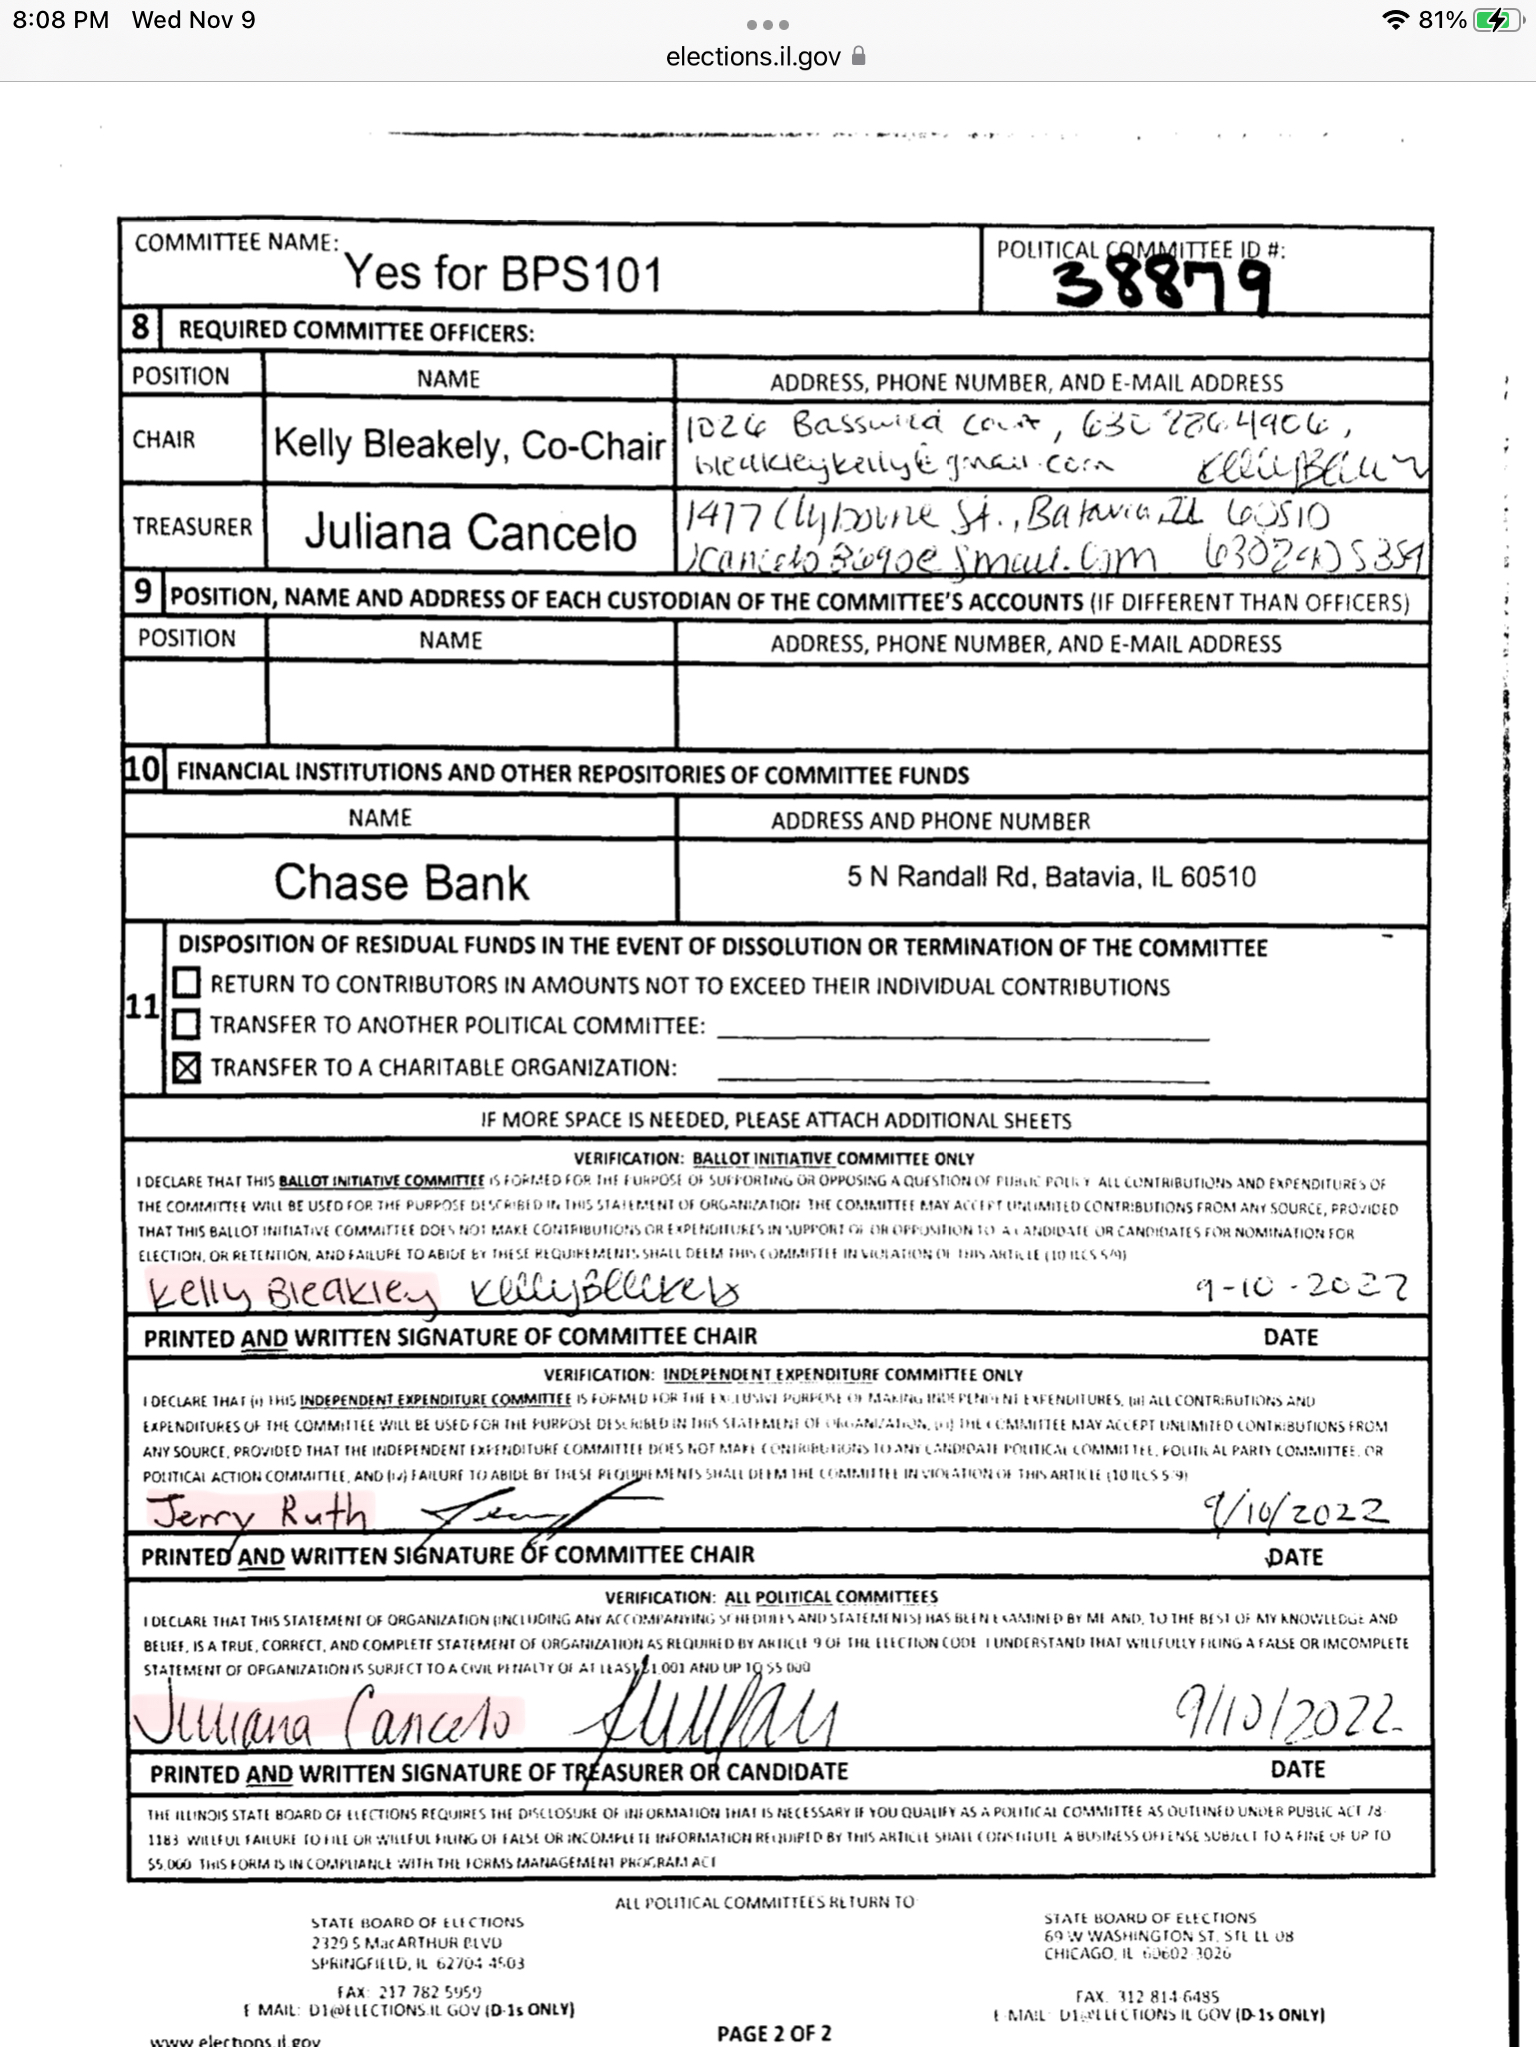 8:08 PM Wed Nov 9
81%
elections.il.gov
COMMITTEE NAME: Yes for BPS101
POLITICAL COMMITTEE ID #: 38879
8 REQUIRED COMMITTEE OFFICERS:
POSITION NAME ADDRESS, PHONE NUMBER, AND E-MAIL ADDRESS
CHAIR Kelly Bleakely, Co-Chair
TREASURER Juliana Cancelo
1477 Clybourne St., Batavia, IL 60510
9 POSITION, NAME AND ADDRESS OF EACH CUSTODIAN OF THE COMMITTEE'S ACCOUNTS (IF DIFFERENT THAN OFFICERS)
POSITION NAME ADDRESS, PHONE NUMBER, AND E-MAIL ADDRESS
10 FINANCIAL INSTITUTIONS AND OTHER REPOSITORIES OF COMMITTEE FUNDS
NAME ADDRESS AND PHONE NUMBER
Chase Bank 5 N Randall Rd, Batavia, IL 60510
11 DISPOSITION OF RESIDUAL FUNDS IN THE EVENT OF DISSOLUTION OR TERMINATION OF THE COMMITTEE
RETURN TO CONTRIBUTORS IN AMOUNTS NOT TO EXCEED THEIR INDIVIDUAL CONTRIBUTIONS
TRANSFER TO ANOTHER POLITICAL COMMITTEE:
TRANSFER TO A CHARITABLE ORGANIZATION:
IF MORE SPACE IS NEEDED, PLEASE ATTACH ADDITIONAL SHEETS
VERIFICATION: BALLOT INITIATIVE COMMITTEE ONLY
I DECLARE THAT THIS BALLOT INITIATIVE COMMITTEE IS FORMED FOR THE PURPOSE OF SUPPORTING OR OPPOSING A QUESTION OF PUBLIC POLICY ALL CONTRIBUTIONS AND EXPENDITURES OF
THE COMMITTEE WILL BE USED FOR THE PURPOSE DESCRIBED IN THIS STATEMENT OF ORGANIZATION THE COMMITTEE MAY ACCEPT UNLIMITED CONTRIBUTIONS FROM ANY SOURCE, PROVIDED
THAT THIS BALLOT INITIATIVE COMMITTEE DOES NOT MAKE CONTRIBUTIONS OR EXPENDITURES IN SUPPORT OF OR OPPOSITION TO A CANDIDATE OR CANDIDATES FOR NOMINATION FOR
ELECTION, OR RETENTION, AND FAILURE TO ABIDE BY THESE REQUIREMENTS SHALL DEEM THIS COMMITTEE IN VIOLATION OF THIS ARTICLE (10 ILCS 5/9)
Kelly Bleakley 9-10-2022
PRINTED AND WRITTEN SIGNATURE OF COMMITTEE CHAIR DATE
VERIFICATION: INDEPENDENT EXPENDITURE COMMITTEE ONLY
I DECLARE THAT (i) THIS INDEPENDENT EXPENDITURE COMMITTEE IS FORMED FOR THE EXCLUSIVE PURPOSE OF MAKING INDEPENDENT EXPENDITURES, (ii) ALL CONTRIBUTIONS AND
EXPENDITURES OF THE COMMITTEE WILL BE USED FOR THE PURPOSE DESCRIBED IN THIS STATEMENT OF ORGANIZATION, (iii) THE COMMITTEE MAY ACCEPT UNLIMITED CONTRIBUTIONS FROM
ANY SOURCE, PROVIDED THAT THE INDEPENDENT EXPENDITURE COMMITTEE DOES NOT MAKE CONTRIBUTIONS TO ANY CANDIDATE POLITICAL COMMITTEE, POLITICAL PARTY COMMITTEE, OR
POLITICAL ACTION COMMITTEE, AND (iv) FAILURE TO ABIDE BY THESE REQUIREMENTS SHALL DEEM THE COMMITTEE IN VIOLATION OF THIS ARTICLE (10 ILCS 5/9)
Jerry Ruth 9/10/2022
PRINTED AND WRITTEN SIGNATURE OF COMMITTEE CHAIR DATE
VERIFICATION: ALL POLITICAL COMMITTEES
I DECLARE THAT THIS STATEMENT OF ORGANIZATION (INCLUDING ANY ACCOMPANYING SCHEDULES AND STATEMENTS) HAS BEEN EXAMINED BY ME AND, TO THE BEST OF MY KNOWLEDGE AND
BELIEF, IS A TRUE, CORRECT, AND COMPLETE STATEMENT OF ORGANIZATION AS REQUIRED BY ARTICLE 9 OF THE ELECTION CODE I UNDERSTAND THAT WILLFULLY FILING A FALSE OR INCOMPLETE
STATEMENT OF ORGANIZATION IS SUBJECT TO A CIVIL PENALTY OF AT LEAST $1,001 AND UP TO $5,000
Juliana Cancelo 9/10/2022
PRINTED AND WRITTEN SIGNATURE OF TREASURER OR CANDIDATE DATE
THE ILLINOIS STATE BOARD OF ELECTIONS REQUIRES THE DISCLOSURE OF INFORMATION THAT IS NECESSARY IF YOU QUALIFY AS A POLITICAL COMMITTEE AS OUTLINED UNDER PUBLIC ACT 78-
1183 WILLFUL FAILURE TO FILE OR WILLFUL FILING OF FALSE OR INCOMPLETE INFORMATION REQUIRED BY THIS ARTICLE SHALL CONSTITUTE A BUSINESS OFFENSE SUBJECT TO A FINE OF UP TO
$5,000 THIS FORM IS IN COMPLIANCE WITH THE FORMS MANAGEMENT PROGRAM ACT
ALL POLITICAL COMMITTEES RETURN TO
STATE BOARD OF ELECTIONS
2329 S MacARTHUR BLVD
SPRINGFIELD, IL 62704-4503
FAX: 217 782 5959
E MAIL: D1@ELECTIONS.IL GOV (D-1s ONLY)
STATE BOARD OF ELECTIONS
69 W WASHINGTON ST, STE LL 08
CHICAGO, IL 60602-3026
FAX. 312 814-6485
E-MAIL: D1@ELECTIONS IL GOV (D-1s ONLY)
www.elections.il.gov
PAGE 2 OF 2